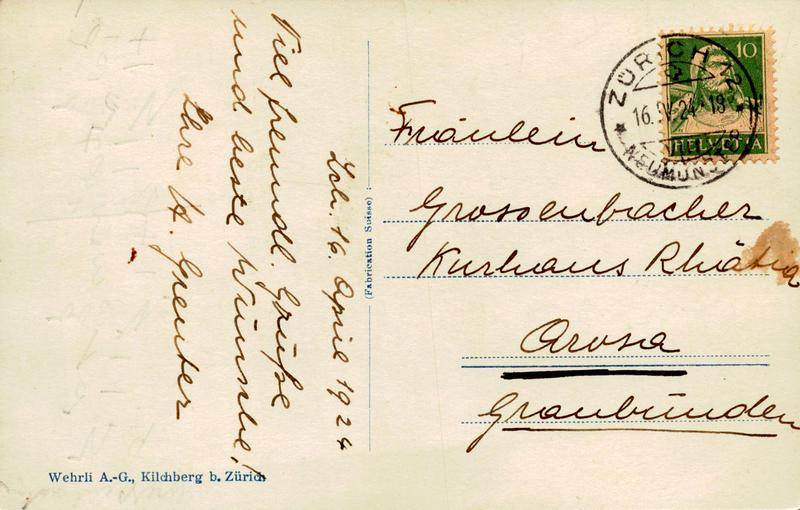 Zch. 16. April 1924
Viel freundl. Grüße
und beste Wünsche!
Ihre H. Greuter
(Fabrication Suisse)
Wehrli A.-G., Kilchberg b. Zürich
10
HELVETIA
ZÜRICH 12
16.IV.24-18
NEUMÜNSTER
Fräulein
Grossenbacher
Kurhaus Rhätia
Arosa
Graubünden